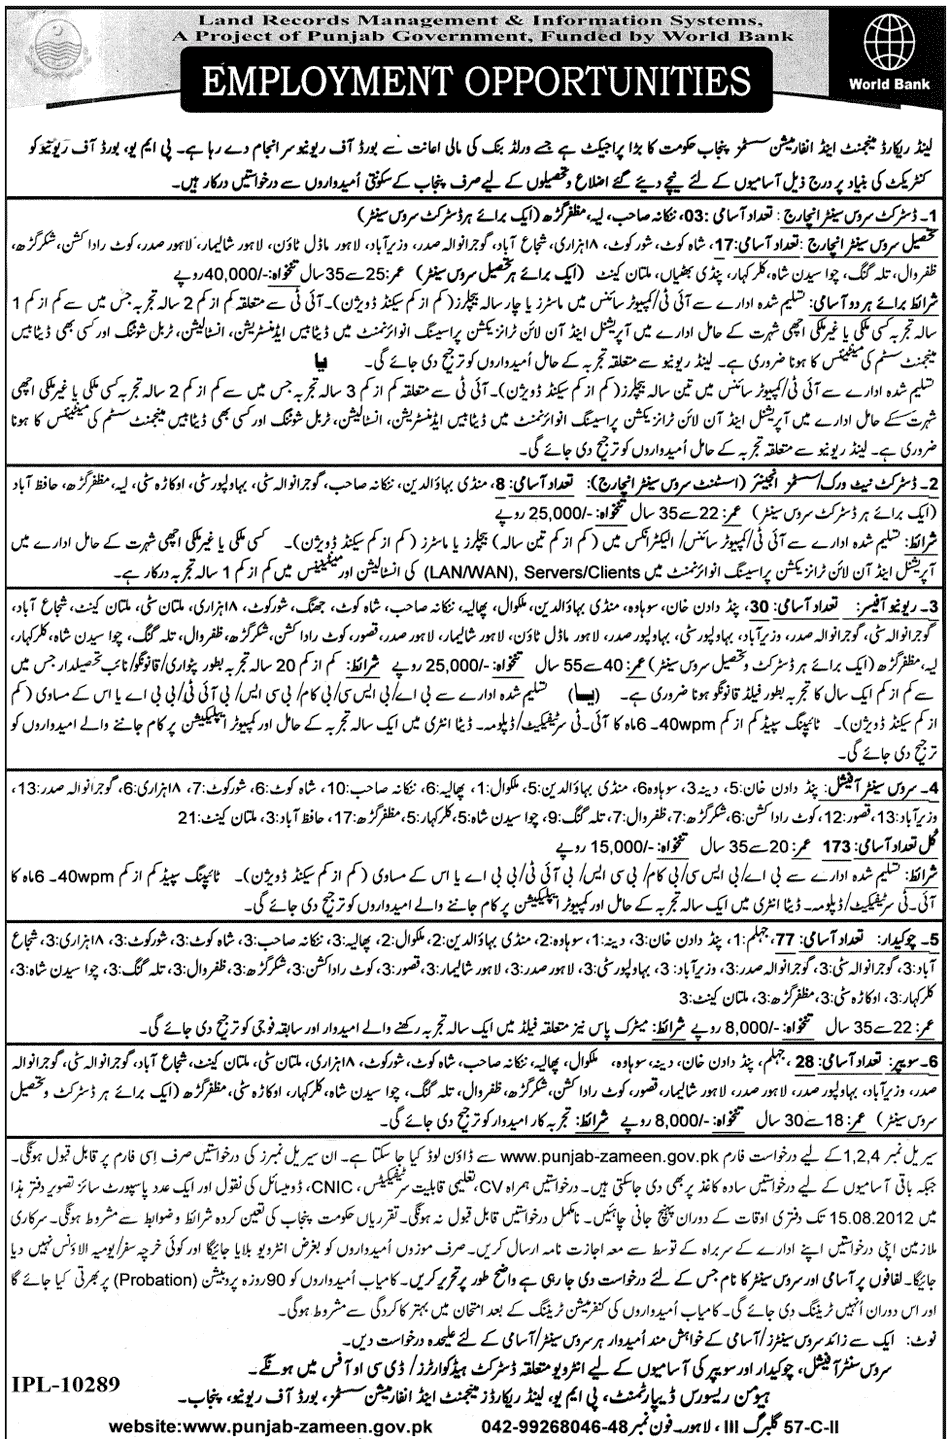 Land Records Management & Information Systems,
A Project of Punjab Government, Funded by World Bank
EMPLOYMENT OPPORTUNITIES
World Bank
لینڈ ریکارڈ مینجمنٹ اینڈ انفارمیشن سسٹمز پنجاب حکومت کا بڑا پراجیکٹ ہے جسے ورلڈ بنک کی مالی اعانت سے بورڈ آف ریونیو سرانجام دے رہا ہے۔ پی ایم یو، بورڈ آف ریونیو کو
کنٹریکٹ کی بنیاد پر درج ذیل آسامیوں کے لئے نیچے دیئے گئے اضلاع و تحصیلوں کے لیے صرف پنجاب کے سکونتی اُمیدواروں سے درخواستیں درکار ہیں۔
1۔ ڈسٹرکٹ سروس سینٹر انچارج: تعداد آسامی: 03، ننکانہ صاحب، لیہ، مظفر گڑھ (ایک برائے ہر ڈسٹرکٹ سروس سینٹر)
تحصیل سروس سینٹر انچارج: تعداد آسامی: 17، شاہ کوٹ، شور کوٹ، ۱۸ ہزاری، شجاع آباد، گوجرانوالہ صدر، وزیر آباد، لاہور ماڈل ٹاؤن، لاہور شالیمار، لاہور صدر، کوٹ رادا کشن، شکر گڑھ،
ظفروال، تلہ گنگ، چوا سیدن شاہ، کلر کہار، پنڈی بھٹیاں، ملتان کینٹ (ایک برائے ہر تحصیل سروس سینٹر) عمر: 25 سے 35 سال تنخواہ: -/40,000 روپے
شرائط برائے ہر دو آسامی: تسلیم شدہ ادارے سے آئی ٹی/کمپیوٹر سائنس میں ماسٹرز یا چار سالہ بیچلرز (کم از کم سیکنڈ ڈویژن)۔ آئی ٹی سے متعلقہ کم از کم 2 سالہ تجربہ جس میں سے کم از کم 1
سالہ تجربہ کسی ملکی یا غیر ملکی اچھی شہرت کے حامل ادارے میں آپریشنل اینڈ آن لائن ٹرانزیکشن پراسیسنگ انوائرنمنٹ میں ڈیٹا بیس ایڈمنسٹریشن، انسٹالیشن، ٹربل شوٹنگ اور کسی بھی ڈیٹا بیس
مینجمنٹ سسٹم کی مینٹیننس کا ہونا ضروری ہے۔ لینڈ ریونیو سے متعلقہ تجربہ کے حامل اُمیدواروں کو ترجیح دی جائے گی۔ یا
تسلیم شدہ ادارے سے آئی ٹی/کمپیوٹر سائنس میں تین سالہ بیچلرز (کم از کم سیکنڈ ڈویژن)۔ آئی ٹی سے متعلقہ کم از کم 3 سالہ تجربہ جس میں سے کم از کم 2 سالہ تجربہ کسی ملکی یا غیر ملکی اچھی
شہرت کے حامل ادارے میں آپریشنل اینڈ آن لائن ٹرانزیکشن پراسیسنگ انوائرنمنٹ میں ڈیٹا بیس ایڈمنسٹریشن، انسٹالیشن، ٹربل شوٹنگ اور کسی بھی ڈیٹا بیس مینجمنٹ سسٹم کی مینٹیننس کا ہونا
ضروری ہے۔ لینڈ ریونیو سے متعلقہ تجربہ کے حامل اُمیدواروں کو ترجیح دی جائے گی۔
2۔ ڈسٹرکٹ نیٹ ورک/سسٹمز انجینئر (اسسٹنٹ سروس سینٹر انچارج): تعداد آسامی: 8، منڈی بہاؤالدین، ننکانہ صاحب، گوجرانوالہ سٹی، بہاولپور سٹی، اوکاڑہ سٹی، لیہ، مظفر گڑھ، حافظ آباد
(ایک برائے ہر ڈسٹرکٹ سروس سینٹر) عمر: 22 سے 35 سال تنخواہ: -/25,000 روپے
شرائط: تسلیم شدہ ادارے سے آئی ٹی/کمپیوٹر سائنس/الیکٹرانکس میں (کم از کم تین سالہ) بیچلرز یا ماسٹرز (کم از کم سیکنڈ ڈویژن)۔ کسی ملکی یا غیر ملکی اچھی شہرت کے حامل ادارے میں
آپریشنل اینڈ آن لائن ٹرانزیکشن پراسیسنگ انوائرنمنٹ میں (LAN/WAN), Servers/Clients کی انسٹالیشن اور مینٹیننس میں کم از کم 1 سالہ تجربہ درکار ہے۔
3۔ ریونیو آفیسر: تعداد آسامی: 30، پنڈ دادن خان، سوہاوہ، منڈی بہاؤالدین، ملکوال، پھالیہ، ننکانہ صاحب، شاہ کوٹ، جھنگ، شور کوٹ، ۱۸ ہزاری، ملتان سٹی، ملتان کینٹ، شجاع آباد،
گوجرانوالہ سٹی، گوجرانوالہ صدر، وزیر آباد، بہاولپور سٹی، بہاولپور صدر، لاہور ماڈل ٹاؤن، لاہور شالیمار، لاہور صدر، قصور، کوٹ رادا کشن، شکر گڑھ، ظفروال، تلہ گنگ، چوا سیدن شاہ، کلر کہار،
لیہ، مظفر گڑھ (ایک برائے ہر ڈسٹرکٹ و تحصیل سروس سینٹر) عمر: 40 سے 55 سال تنخواہ: -/25,000 روپے شرائط: کم از کم 20 سالہ تجربہ بطور پٹواری/قانونگو/نائب تحصیلدار جس میں
سے کم از کم ایک سال کا تجربہ بطور فیلڈ قانونگو ہونا ضروری ہے۔ (یا) تسلیم شدہ ادارے سے بی اے/بی ایس سی/بی کام/بی سی ایس/بی آئی ٹی/بی بی اے یا اس کے مساوی (کم
از کم سیکنڈ ڈویژن)۔ ٹائپنگ سپیڈ کم از کم 40wpm۔ 6 ماہ کا آئی۔ٹی سرٹیفکیٹ/ڈپلومہ۔ ڈیٹا انٹری میں ایک سالہ تجربہ کے حامل اور کمپیوٹر ایپلیکیشن پر کام جاننے والے امیدواروں کو
ترجیح دی جائے گی۔
4۔ سروس سینٹر آفیشل: پنڈ دادن خان:5، دینہ 3، سوہاوہ 6، منڈی بہاؤالدین:5، ملکوال:1، پھالیہ:6، ننکانہ صاحب:10، شاہ کوٹ:6، شور کوٹ:7، ۱۸ ہزاری:6، گوجرانوالہ صدر:13،
وزیر آباد:13، قصور:12، کوٹ رادا کشن:6، شکر گڑھ:7، ظفروال:7، تلہ گنگ:9، چوا سیدن شاہ:5، کلر کہار:5، مظفر گڑھ:17، حافظ آباد:3، ملتان کینٹ:21
کُل تعداد آسامی: 173 عمر: 20 سے 35 سال تنخواہ: -/15,000 روپے
شرائط: تسلیم شدہ ادارے سے بی اے/بی ایس سی/بی کام/بی سی ایس/بی آئی ٹی/بی بی اے یا اس کے مساوی (کم از کم سیکنڈ ڈویژن)۔ ٹائپنگ سپیڈ کم از کم 40wpm۔ 6 ماہ کا
آئی۔ٹی سرٹیفکیٹ/ڈپلومہ۔ ڈیٹا انٹری میں ایک سالہ تجربہ کے حامل اور کمپیوٹر ایپلیکیشن پر کام جاننے والے امیدواروں کو ترجیح دی جائے گی۔
5۔ چوکیدار: تعداد آسامی: 77، جہلم:1، پنڈ دادن خان:3، دینہ:1، سوہاوہ:2، منڈی بہاؤالدین:2، ملکوال:2، پھالیہ:3، ننکانہ صاحب:3، شاہ کوٹ:3، شور کوٹ:3، ۱۸ ہزاری:3، شجاع
آباد:3، گوجرانوالہ سٹی:3، گوجرانوالہ صدر:3، وزیر آباد:3، بہاولپور سٹی:3، لاہور صدر:3، لاہور شالیمار:3، قصور:3، کوٹ رادا کشن:3، شکر گڑھ:3، ظفروال:3، تلہ گنگ:3، چوا سیدن شاہ:3،
کلر کہار:3، اوکاڑہ سٹی:3، مظفر گڑھ:3، ملتان کینٹ:3
عمر: 22 سے 35 سال تنخواہ: -/8,000 روپے شرائط: میٹرک پاس نیز متعلقہ فیلڈ میں ایک سالہ تجربہ رکھنے والے امیدوار اور سابقہ فوجی کو ترجیح دی جائے گی۔
6۔ سویپر: تعداد آسامی: 28، جہلم، پنڈ دادن خان، دینہ، سوہاوہ، ملکوال، پھالیہ، ننکانہ صاحب، شاہ کوٹ، شور کوٹ، ۱۸ ہزاری، ملتان سٹی، ملتان کینٹ، شجاع آباد، گوجرانوالہ سٹی، گوجرانوالہ
صدر، وزیر آباد، بہاولپور صدر، لاہور صدر، لاہور شالیمار، قصور، کوٹ رادا کشن، شکر گڑھ، ظفروال، تلہ گنگ، چوا سیدن شاہ، کلر کہار، اوکاڑہ سٹی، مظفر گڑھ (ایک برائے ہر ڈسٹرکٹ و تحصیل
سروس سینٹر) عمر: 18 سے 30 سال تنخواہ: -/8,000 روپے شرائط: تجربہ کار امیدوار کو ترجیح دی جائے گی۔
سیریل نمبر 1,2,4 کے لیے درخواست فارم www.punjab-zameen.gov.pk سے ڈاؤن لوڈ کیا جا سکتا ہے۔ ان سیریل نمبرز کی درخواستیں صرف اِسی فارم پر قابل قبول ہونگی۔
جبکہ باقی آسامیوں کے لیے درخواستیں سادہ کاغذ پر بھی دی جا سکتی ہیں۔ درخواستیں ہمراہ CV، تعلیمی قابلیت سرٹیفکیٹس، CNIC، ڈومیسائل کی نقول اور ایک عدد پاسپورٹ سائز تصویر دفتر ہذا
میں 15.08.2012 تک دفتری اوقات کے دوران پہنچ جانی چاہیئں۔ نامکمل درخواستیں قابل قبول نہ ہونگی۔ تقرریاں حکومت پنجاب کی تعین کردہ شرائط و ضوابط سے مشروط ہونگی۔ سرکاری
ملازمین اپنی درخواستیں اپنے ادارے کے سربراہ کے توسط سے معہ اجازت نامہ ارسال کریں۔ صرف موزوں اُمیدواروں کو بغرض انٹرویو بلایا جائیگا اور کوئی خرچہ سفر/یومیہ الاؤنس نہیں دیا
جائیگا۔ لفافوں پر آسامی اور سروس سینٹر کا نام جس کے لئے درخواست دی جا رہی ہے واضح طور پر تحریر کریں۔ کامیاب اُمیدواروں کو 90 روزہ پروبیشن (Probation) پر بھرتی کیا جائے گا
اور اس دوران اُنہیں ٹریننگ دی جائے گی۔ کامیاب اُمیدواروں کی کنفرمیشن ٹریننگ کے بعد امتحان میں بہتر کارکردگی سے مشروط ہوگی۔
نوٹ: ایک سے زائد سروس سینٹرز/آسامی کے خواہش مند اُمیدوار ہر سروس سینٹر/آسامی کے لئے علیحدہ درخواست دیں۔
سروس سنٹر آفیشل، چوکیدار اور سویپر کی آسامیوں کے لیے انٹرویو متعلقہ ڈسٹرکٹ ہیڈ کوارٹرز/ڈی سی او آفس میں ہونگے۔
IPL-10289
ہیومن ریسورس ڈیپارٹمنٹ، پی ایم یو، لینڈ ریکارڈز مینجمنٹ اینڈ انفارمیشن سسٹمز، بورڈ آف ریونیو، پنجاب۔
57-C-II گلبرگ III، لاہور۔ فون نمبر 042-99268046-48 website:www.punjab-zameen.gov.pk